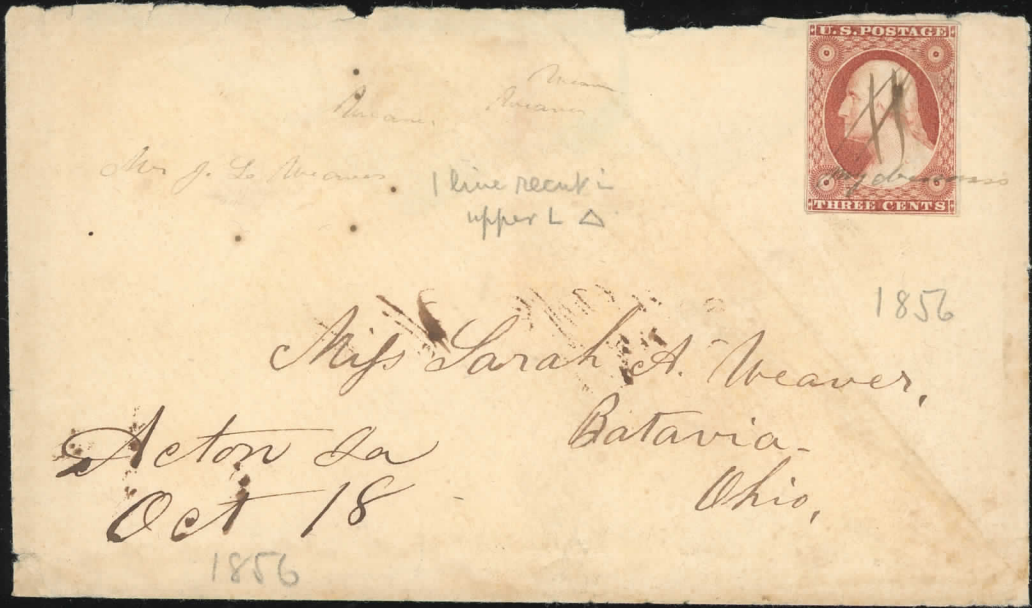 U.S. POSTAGE
THREE CENTS
Weaver
Weaver
Mrs J. L. Weaver
1 line recut in
upper L △
1856
Miss Sarah A. Weaver,
Batavia
Ohio,
Acton Ia
Oct 18
1856